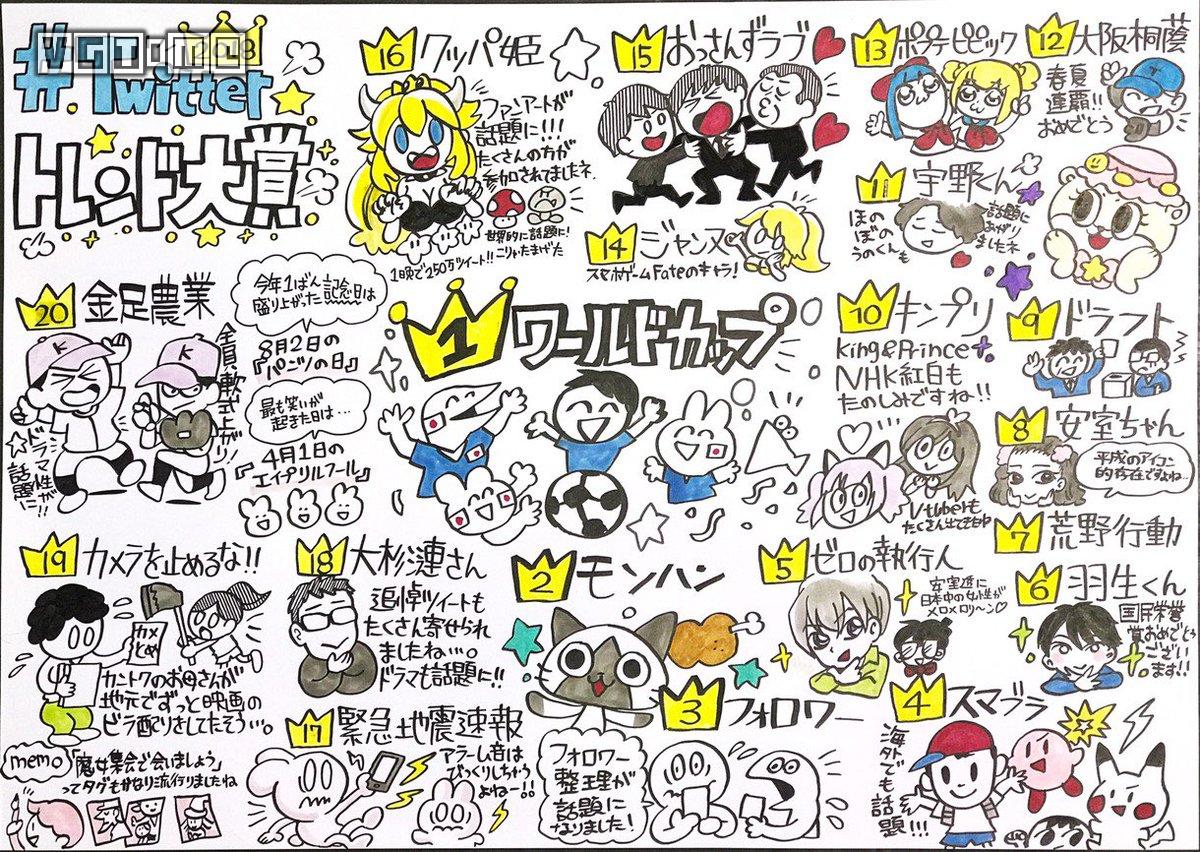 #Twitter
トレンド大賞
2018
16 クッパ姫
ファンアートが
話題に!!!
たくさんの方が
参加されてましたネ.
世界的に話題に!
こりゃたまげた
1晩で250万ツイート!!
15 おっさんずラブ
14 ジャンヌ
スマホゲームFateのキャラ!
13 ポプテピピック
12 大阪桐蔭
春夏
連覇!!
おめでとう
11 宇野くん
ほの
ぼの
うのくんも
話題に
あがり
ましたネ
20 金足農業
全員軟式上がり!
☆ドラマ性が
話題に!!
今年1ばん
盛り上がった記念日は
8月2日の
『パンツの日』
最も笑いが
起きた日は…
4月1日の
『エイプリルフール』
1 ワールドカップ
10 キンプリ
King&Prince
NHK紅白も
たのしみですね〜!!
Vtuberも
たくさん出てきたね
9 ドラフト
8 安室ちゃん
平成のアイコン
的存在ですよね…
7 荒野行動
19 カメラを止めるな!!
カメ
とめ
カントクのお母さんが
地元でずっと映画の
ビラ配りをしてたそう…。
memo
「魔女集会で会いましょう」
ってタグもかなり流行りましたね
18 大杉漣さん
追悼ツイートも
たくさん寄せられ
ましたね…。
ドラマも話題に!!
17 緊急地震速報
アラーム音は
びっくりしちゃう
よねー!!
2 モンハン
3 フォロワー
フォロワー
整理が
話題に
なりました!
5 ゼロの執行人
安室透に
日本中の女性が
メロメロリ〜ン♡
6 羽生くん
国民栄誉
賞おめでとう
ござい
ます!!
4 スマブラ
海外でも話題!!!